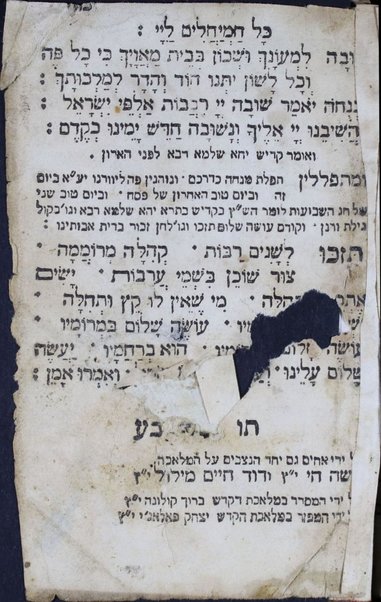 כָּל הַמְיַחֲלִים לַיְיָ :
שׁוּבָה לִמְעוֹנָךְ וּשְׁכוֹן בְּבֵית מַאֲוַיָּךְ כִּי כָל פֶּה
וְכָל לָשׁוֹן יִתְּנוּ הוֹד וְהָדָר לְמַלְכוּתָךְ :
וּבְנֻחֹה יֹאמַר שׁוּבָה יְיָ רִבְבוֹת אַלְפֵי יִשְׂרָאֵל :
הֲשִׁיבֵנוּ יְיָ אֵלֶיךָ וְנָשׁוּבָה חַדֵּשׁ יָמֵינוּ כְּקֶדֶם :
ואומר קדיש יהא שלמא רבא לפני הארון .
ומתפללין תפלת מנחה כדרכם . ונוהגין פה ליוורנו יע״א ביום
זה וביום טוב האחרון של פסח . וביום טוב שני
של חג השבועות לומר הש״ץ בקדיש בתרא יהא שלמא רבא וגו׳ בקול
גילת ורנן . וקודם עושה שלום תזכו וגו׳ לחן זכור ברית אבותינו :
תִּזְכּוּ לְשָׁנִים רַבּוֹת . קְהִלָּה מְרוֹמָמָה .
צוּר שׁוֹכֵן בִּשְׁמֵי עֲרָבוֹת . יָשִׂים
אֶתְכֶם תְּהִלָּה . מִי שֶׁאֵין לוֹ קֵץ וּתְחִלָּה .
עוֹשֶׂה שָׁלוֹם בִּמְרוֹמָיו .
עוֹשֶׂה שָׁלוֹם בִּמְרוֹמָיו . הוּא בְרַחֲמָיו . יַעֲשֶׂה
שָׁלוֹם עָלֵינוּ . וְעַל . וְאִמְרוּ אָמֵן :
תו בע
על ידי אחים גם יחד הנצבים על המלאכה
משה חי י״ץ ודוד חיים מילול י״ץ
על ידי המסדר במלאכת הקדש ברוך קולונה י״ץ
על ידי המפזר במלאכת הקדש יצחק פאלאג׳י י״ץ